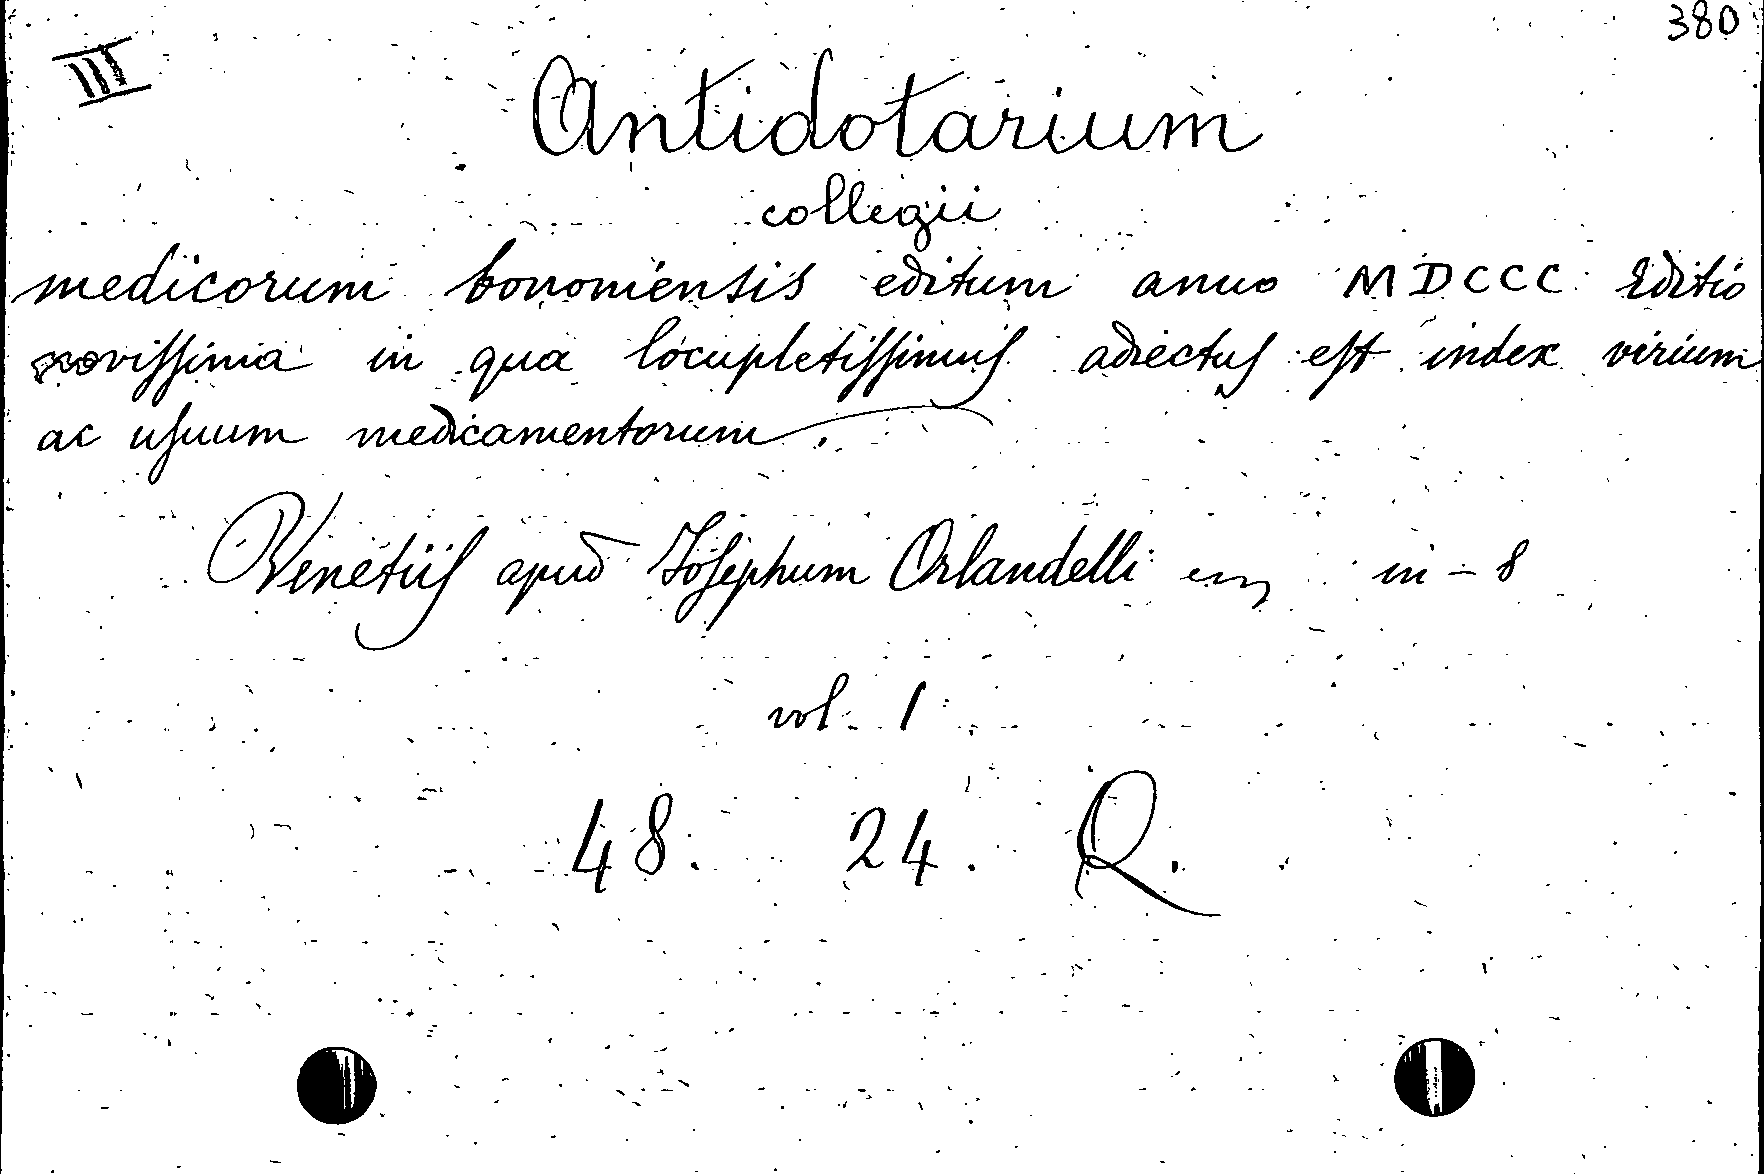 380
III
Antidotarium
collegii
medicorum bononiensis editum anno MDCCC Editio
novissima in qua locupletissimus adiectus est index virium
ac usuum medicamentorum.
Venetiis apud Iosephum Orlandelli in-8
vol 1
48. 24. Q.